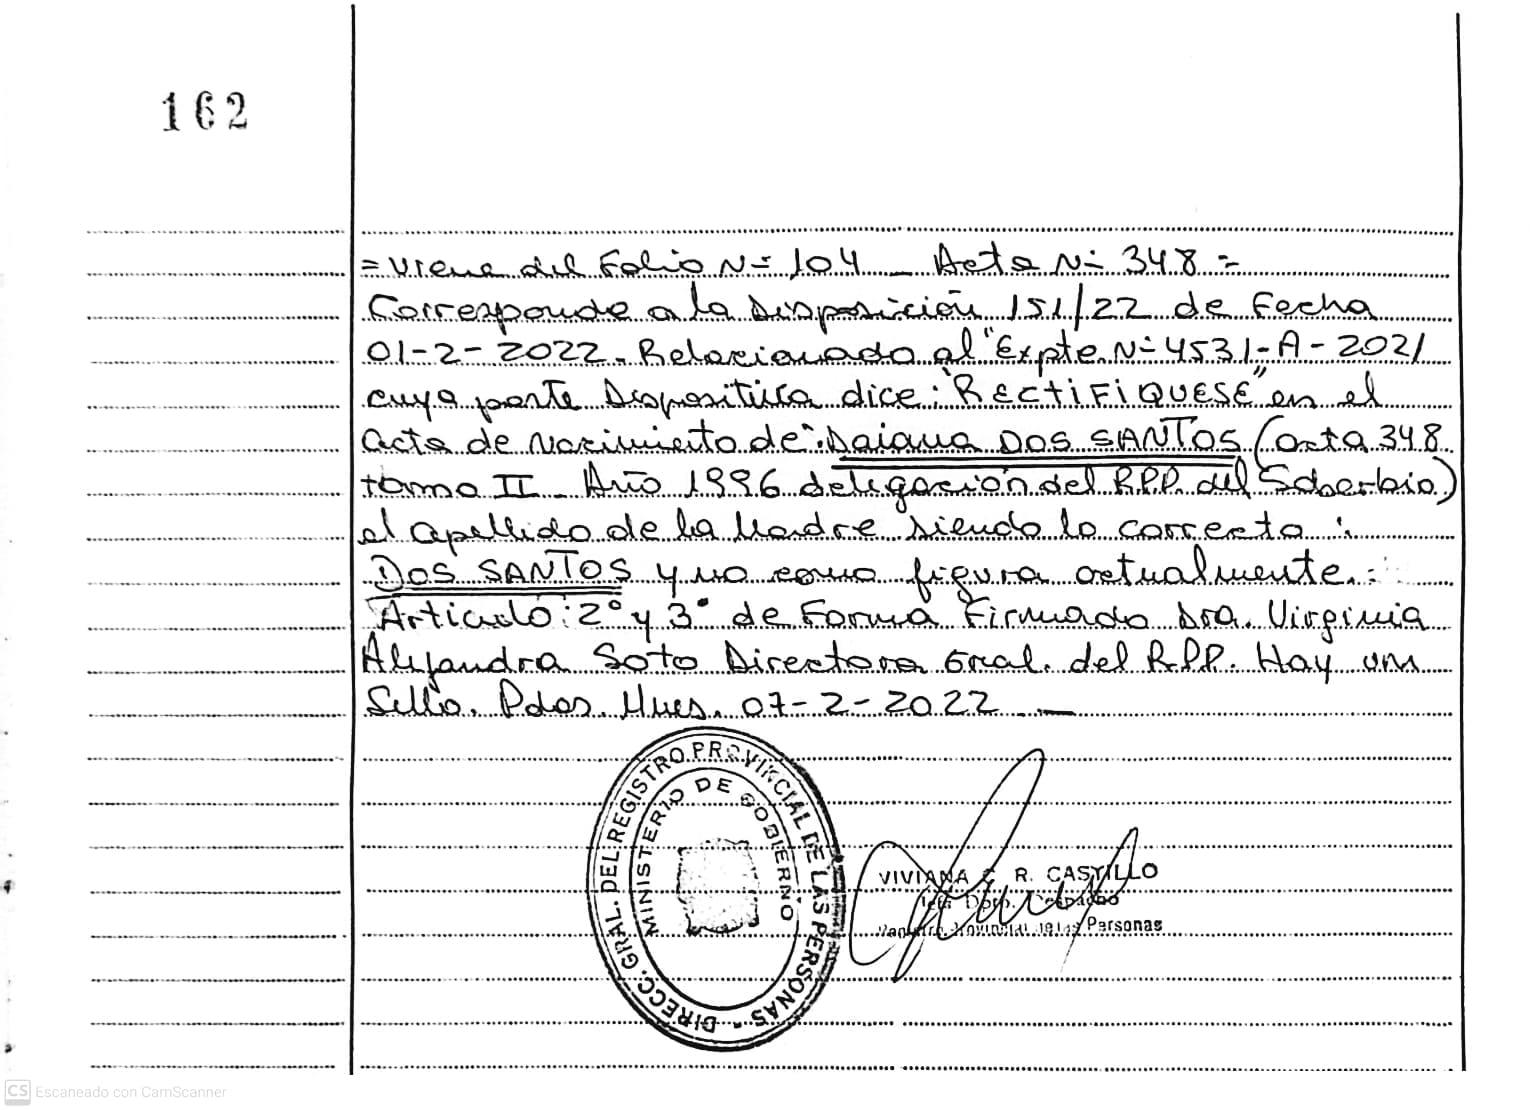 162
= Viene del Folio Nº 104 _ Acta Nº 348 =
Corresponde a la Disposición 151/22 de Fecha
01-2-2022. Relacionado al "Expte. Nº 4531-A-2021
cuya parte Dispositiva dice: "RECTIFIQUESE" en el
acta de Nacimiento de: Daiana DOS SANTOS (acta 348
tomo II _ Año 1996 delegación del R.P.P. del Soberbio)
el apellido de la Madre siendo lo correcto :
DOS SANTOS y no como figura actualmente. -
Articulo: 2º y 3º de Forma Firmado Dra. Virginia
Alejandra Soto Directora Gral. del R.P.P. Hay un
Sello. Pdas. Mnes. 07-2-2022 _ _
DIRECC. GRAL. DEL REGISTRO PROVINCIAL DE LAS PERSONAS -
MINISTERIO DE GOBIERNO
VIVIANA C. R. CASTILLO
Jefa Dpto. Despacho
Registro Provincial de las Personas
CS Escaneado con CamScanner